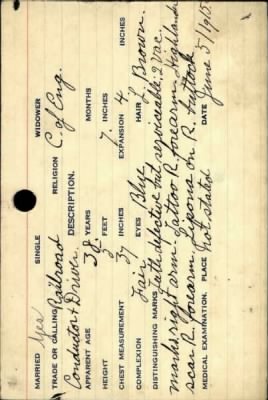 MARRIED Yes SINGLE WIDOWER
TRADE OR CALLING Railroad RELIGION C. of Eng.
Conductor & Driver DESCRIPTION.
APPARENT AGE 38 YEARS MONTHS
HEIGHT 5 7 INCHES
CHEST MEASUREMENT 37 INCHES EXPANSION 4 INCHES
COMPLEXION Fair EYES Blue HAIR L. Brown.
DISTINGUISHING MARKS Teeth defective but serviceable. 2 Vac.
marks right arm. Tattoo R. forearm. Highlander
scar R. forearm. Lipoma on R. Buttock
MEDICAL EXAMINATION. PLACE Not stated DATE June 5/1915.